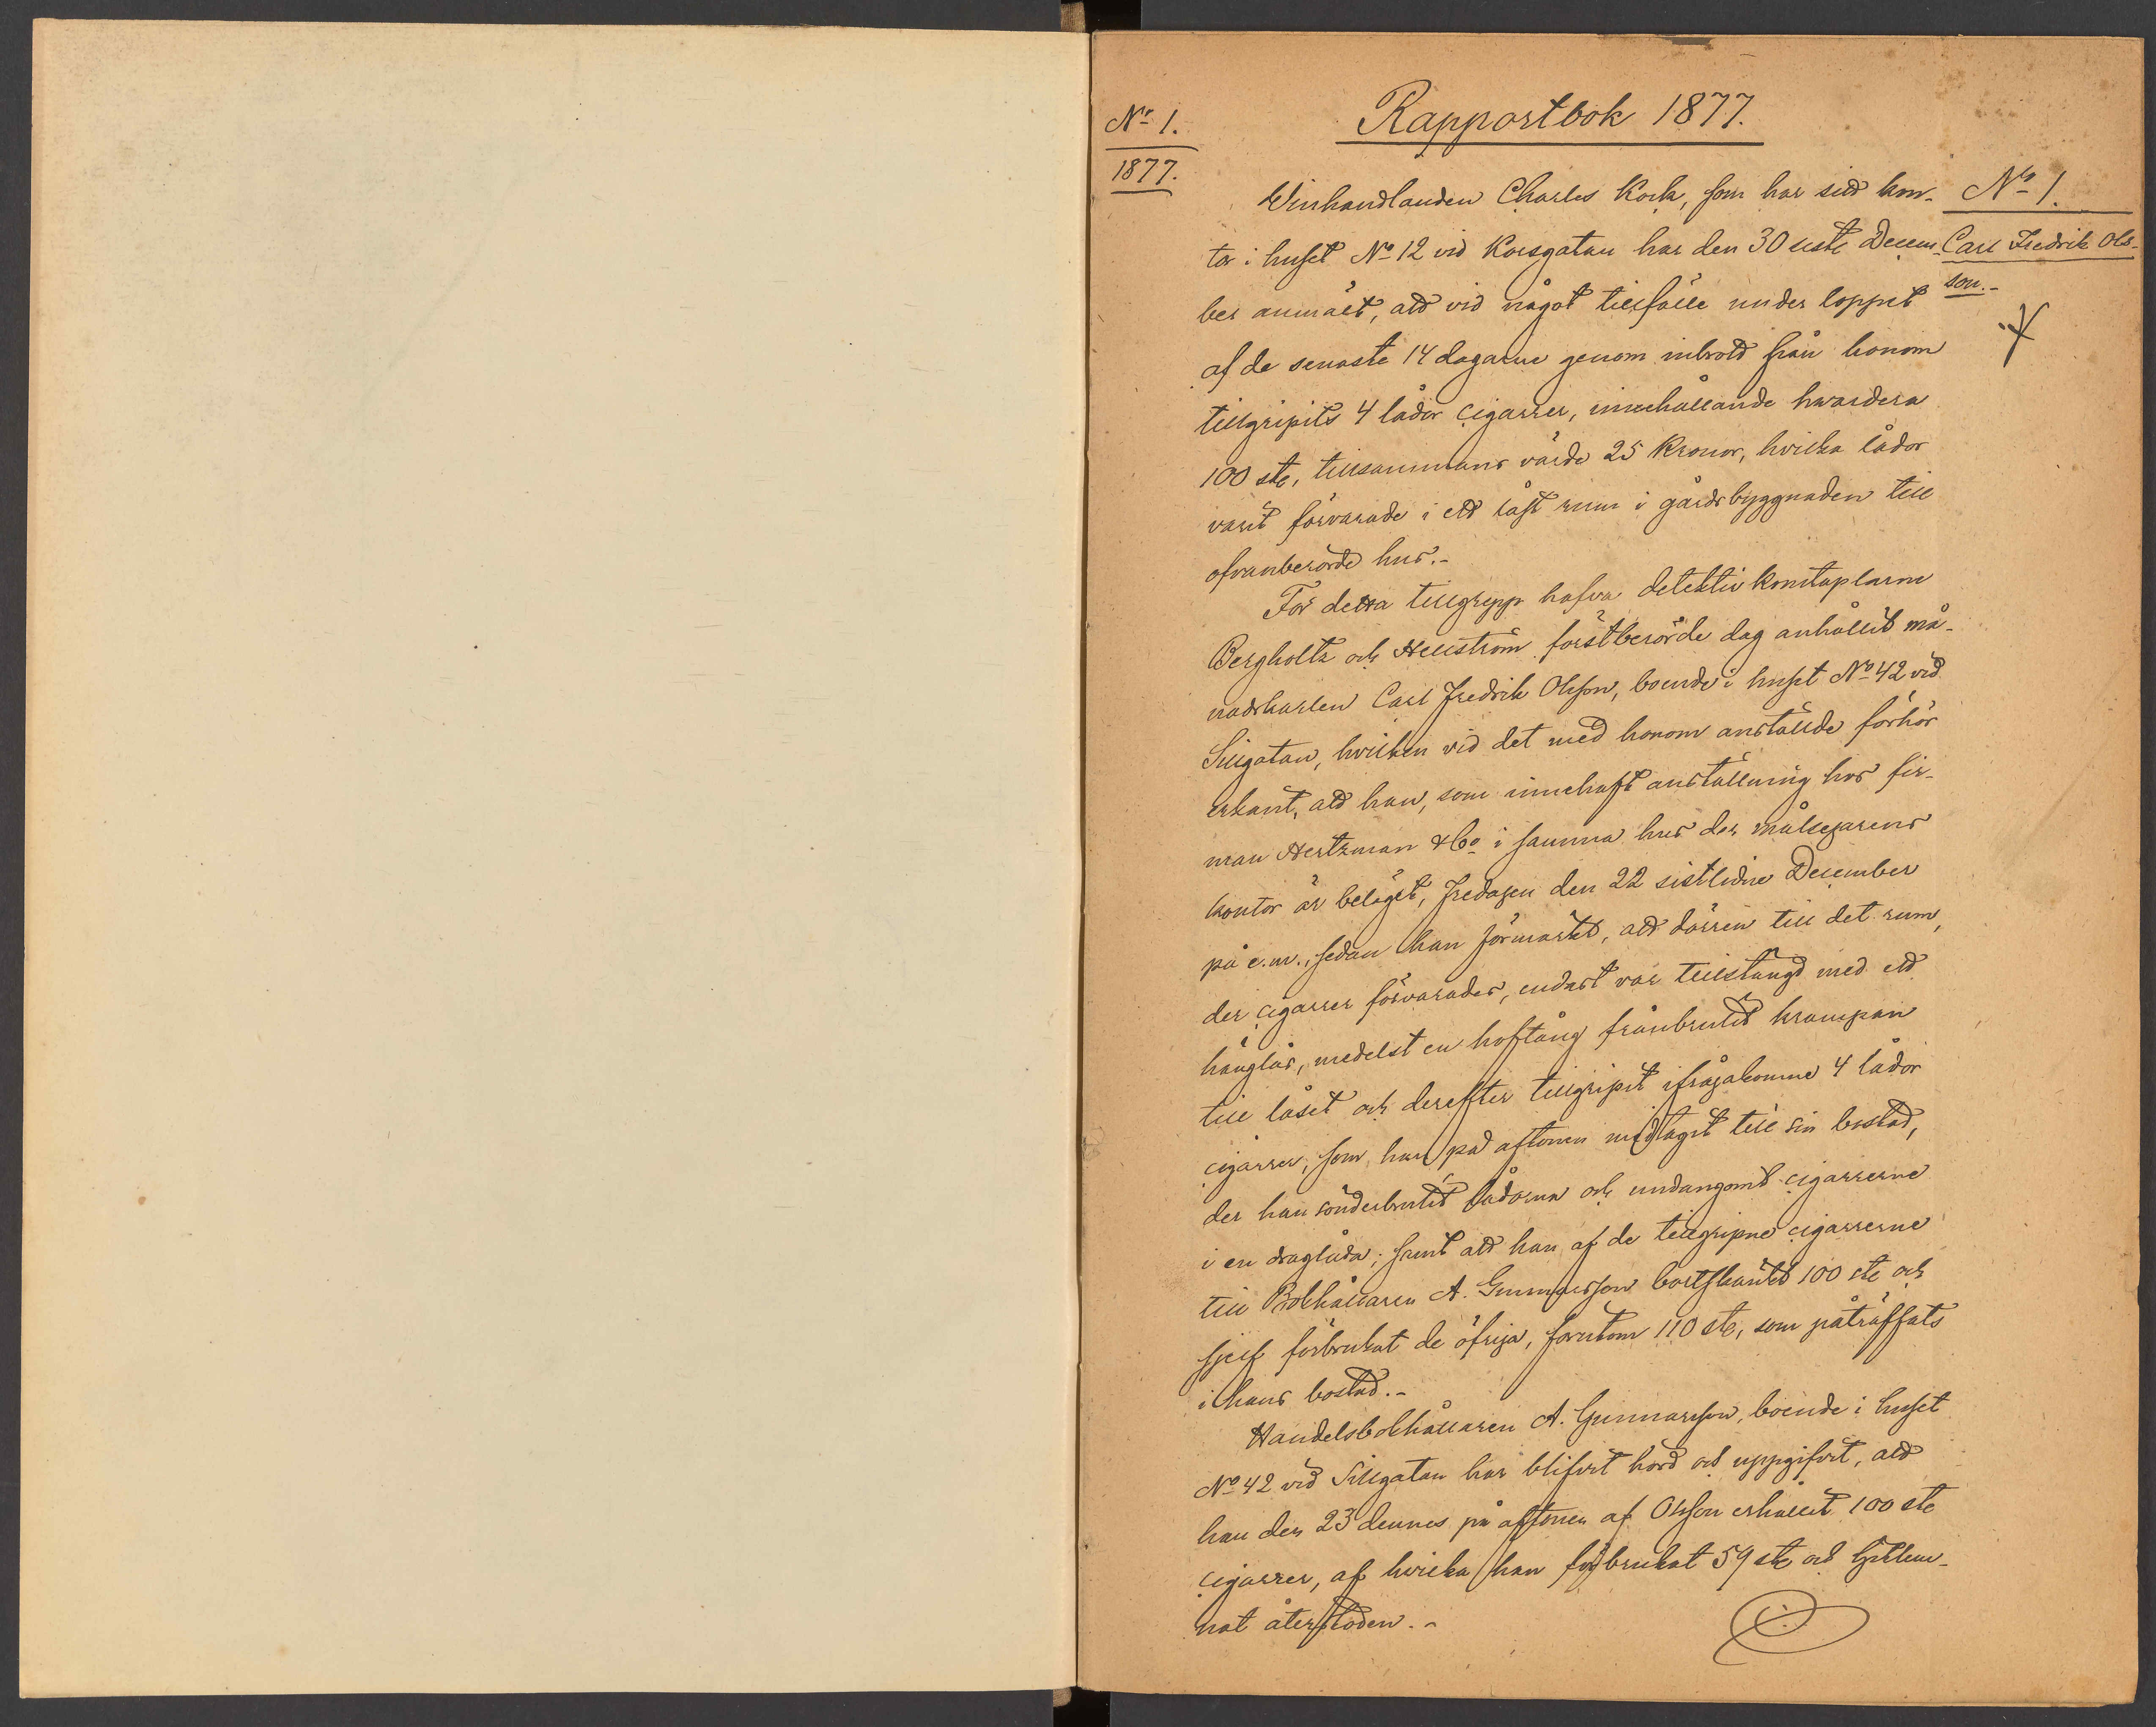 No 1.
1877.
Rapportbok 1877.
No 1.
Carl Fredrik Ols-
son.-
Vinhandlanden Charles Kock, som har sitt kon-
tor i huset No 12 vid Korsgatan har den 30 siste Decem-
ber anmält, att vid något tillfälle under loppet
af de senaste 14 dagarne genom inbrott från honom
tillgripits 4 lådor cigarrer, innehållande hvardera
100 st, tillsammans värde 25 Kronor, hvilka lådor
varit förvarade i ett låst rum i gårdsbyggnaden till
ofvanberörde hus.-
För detta tillgrepp hafva detektiv konstaplarne
Bergholtz och Hellström förstberörde dag anhållit må-
nadskarlen Carl Fredrik Olsson, boende i huset No 42 vid
Sillgatan, hvilken vid det med honom anstälde förhör
erkänt, att han, som innehaft anställning hos fir-
man Hertzman & Co i samma hus der målsegarens
kontor är beläget, Fredagen den 22 sistlidne December
på e.m., sedan han förmärkt, att dörren till det rum,
der cigarrer förvarades, endast var tillstängd med ett
hänglås, medelst en hoftång frånbrutit krampan
till låset och derefter tillgripit ifrågakomne 4 lådor
cigarrer, som han på aftonen medtagit till sin bostad,
der han sönderbrutit lådorna och undangömt cigarrerne
i en draglåda; samt att han af de tillgripne cigarrerne
till Bokhållaren A. Gunnarsson bortskänkt 100 st och
sjelf förbrukat de öfriga, förutom 110 st, som påträffats
i hans bostad.-
Handelsbokhållaren A. Gunnarsson, boende i huset
No 42 vid Sillgatan har blifvit hörd och uppgifvit, att
han den 23 dennes på aftonen af Olsson erhållit 100 st
cigarrer, af hvilka han förbrukat 59 st och tillem-
nat återstoden.-